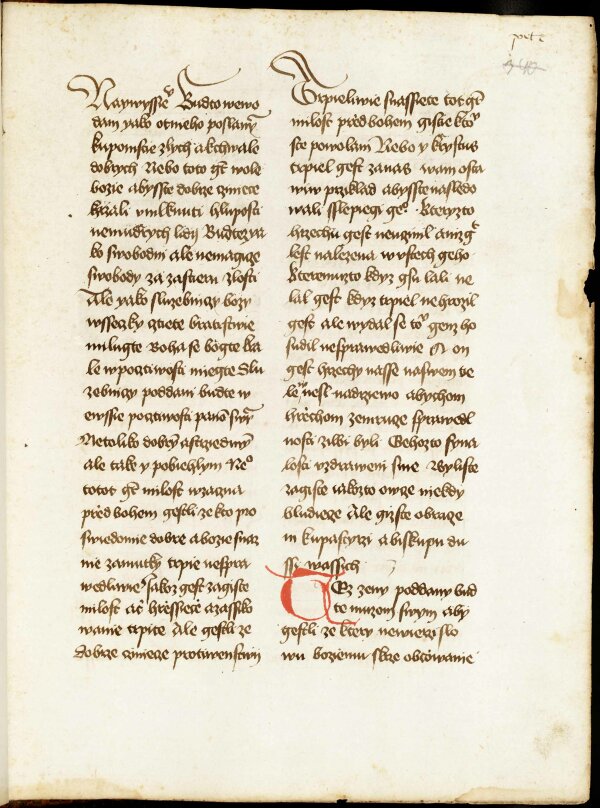 petr
Naywyssie° Budto wewo
dam yako otnieho poslany
kupomstie zlych akchwale
dobrych Nebo toto gt wole
bozie abysste dobrze cziniece
krzali vmlknuti hluposti
nemudrych lidij Budte ya
ko swobodni ale nemagice
swobody za zastieru zlosti
Ale yako sluzebniczy bozy
wsseczky cztiete bratrstwie
milugte Boha se bogte kra
le wpocztiwosti miegte Slu
zebniczy poddani budte w
ewssie pocztiwosti panom swy
Netoliko dobry astrziedmy
ale take y pobiehlym Ne°
totot gt milost wzacna
przed bohem gestli ze kto po
swiedomie dobre abozie snaz
nie zamutky trpie nespra
wedliwie Jakaz gest zagiste
milost ac hressiece azassiko
wanie trpite Ale gestli ze
dobrze cziniece protiwenstwij
A trpieliwie snassiete tot gt
milost przed bohem gistie kto°
ste powolani Nebo y krystus
trpiel gest zanas wam osta
wiw przieklad abysste nasledo
wali sslepiegi ge° kteryzto
hrzechu gest neuczinil aniz g
lest nalezena wustech geho
kteremuzto kdyz gsu lali ne
lal gest kdyz trpiel nehrozil
gest ale wydal se to° genz ho
sudil nesprawedliwie On
gest hrzechy nasse naswem tie
le nesl nadrziewo abychom
hrziechom zemruce sprawedl
nosti ziwi byli Gehozto syna
losti vzdraweni sme Byliste
zagiste iakozto owce niekdy
bludiece Ale gizste obrace
ni kupastyrzi abiskupu du
ssi wassich
Tez zeny poddany bud
te muzom swym aby
gestli ze ktery newierzi slo
wu boziemu skrze obcowanie